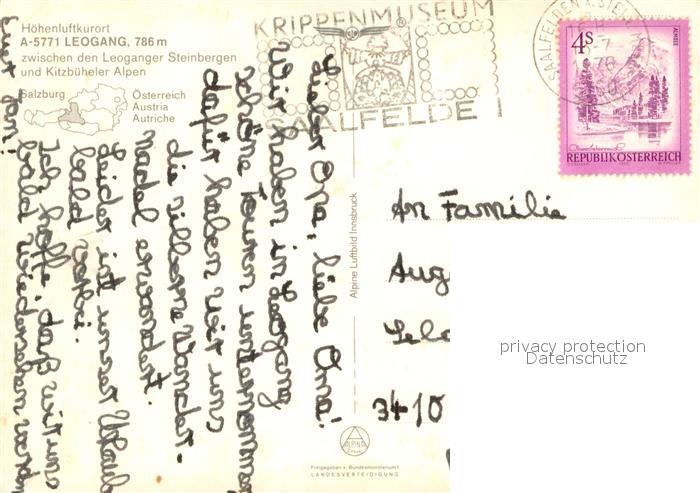 Höhenluftkurort
A-5771 LEOGANG, 786 m
zwischen den Leoganger Steinbergen
und Kitzbüheler Alpen
Salzburg
Österreich
Austria
Autriche
KRIPPENMUSEUM
SAALFELDEN
4S
ALMSEE
REPUBLIK ÖSTERREICH
Lieber Opa, liebe Oma!
Wir haben in Leogang
schöne Touren unternommen
dafür haben wir uns
die silberne Wander-
nadel erwandert.
Leider ist unser Urlaub
bald vorbei.
Ich hoffe, daß wir uns
bald wiedersehen werden
Euer
Alpine Luftbild Innsbruck
ALPINA
Freigegeben v. Bundesministerium f.
LANDESVERTEIDIGUNG
An Familie
Aug
3410
privacy protection
Datenschutz